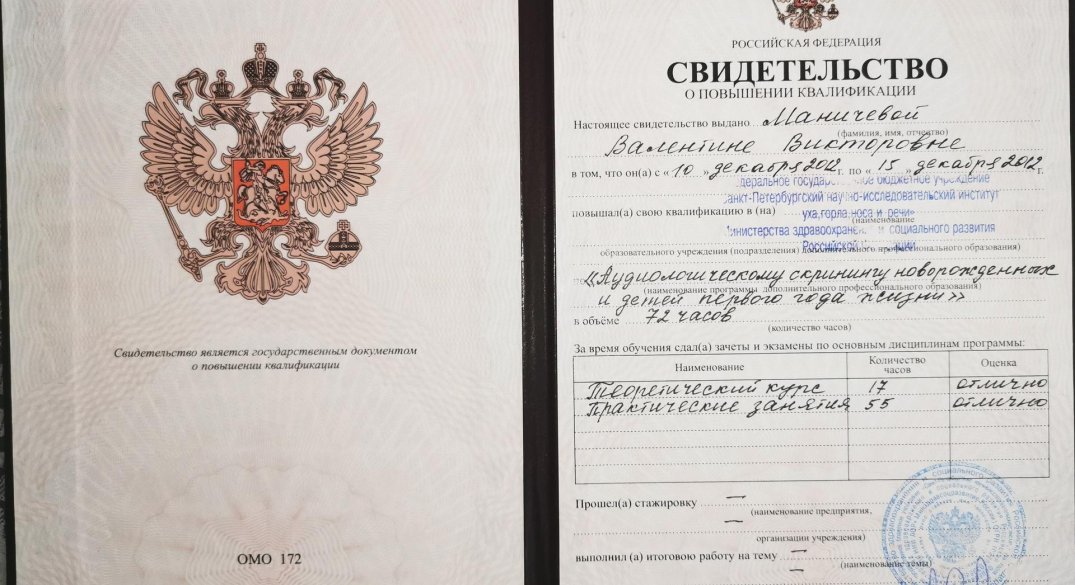 Свидетельство является государственным документом
о повышении квалификации
ОМО 172
РОССИЙСКАЯ ФЕДЕРАЦИЯ
СВИДЕТЕЛЬСТВО
О ПОВЫШЕНИИ КВАЛИФИКАЦИИ
Настоящее свидетельство выдано Маничевой
(фамилия, имя, отчество)
Валентине Викторовне
в том, что он(а) с «10» декабря 2012 г. по «15» декабря 2012 г.
бюджетное учреждение
Санкт-Петербургский научно-исследовательский институт
повышал(а) свою квалификацию в (на) уха, горла, носа и речи»
(наименование
Министерства здравоохранения и социального развития
Российской
образовательного учреждения (подразделения) дополнительного профессионального образования)
по «Аудиологическому скринингу новорожденных
(наименование программы дополнительного профессионального образования)
и детей первого года жизни»
в объёме 72 часов
(количество часов)
За время обучения сдал(а) зачеты и экзамены по основным дисциплинам программы:
Наименование Количество часов Оценка
Теоретический курс 17 отлично
Практические занятия 55 отлично
Прошел(а) стажировку —
(наименование предприятия,
—
организации учреждения)
выполнил (а) итоговою работу на тему —
(наименование темы)
—